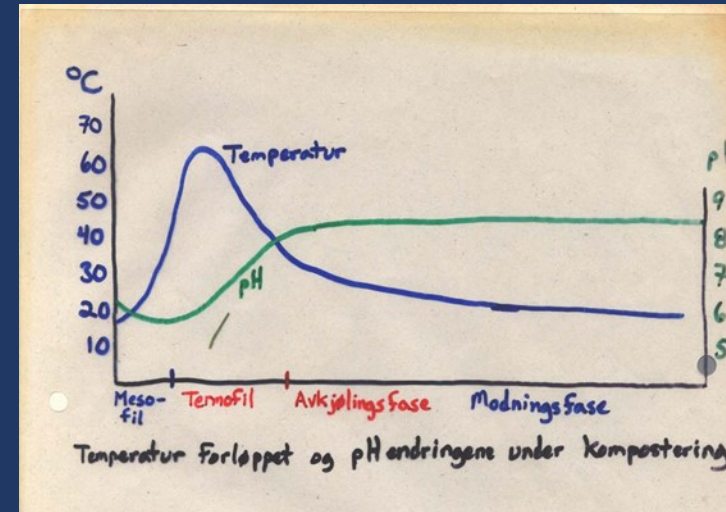 °C
70
60
50
40
30
20
10
Temperatur
pH
9
8
7
6
5
Meso-
fil
Termofil
Avkjølingsfase
Modningsfase
Temperatur forløppet og pH endringene under Kompostering